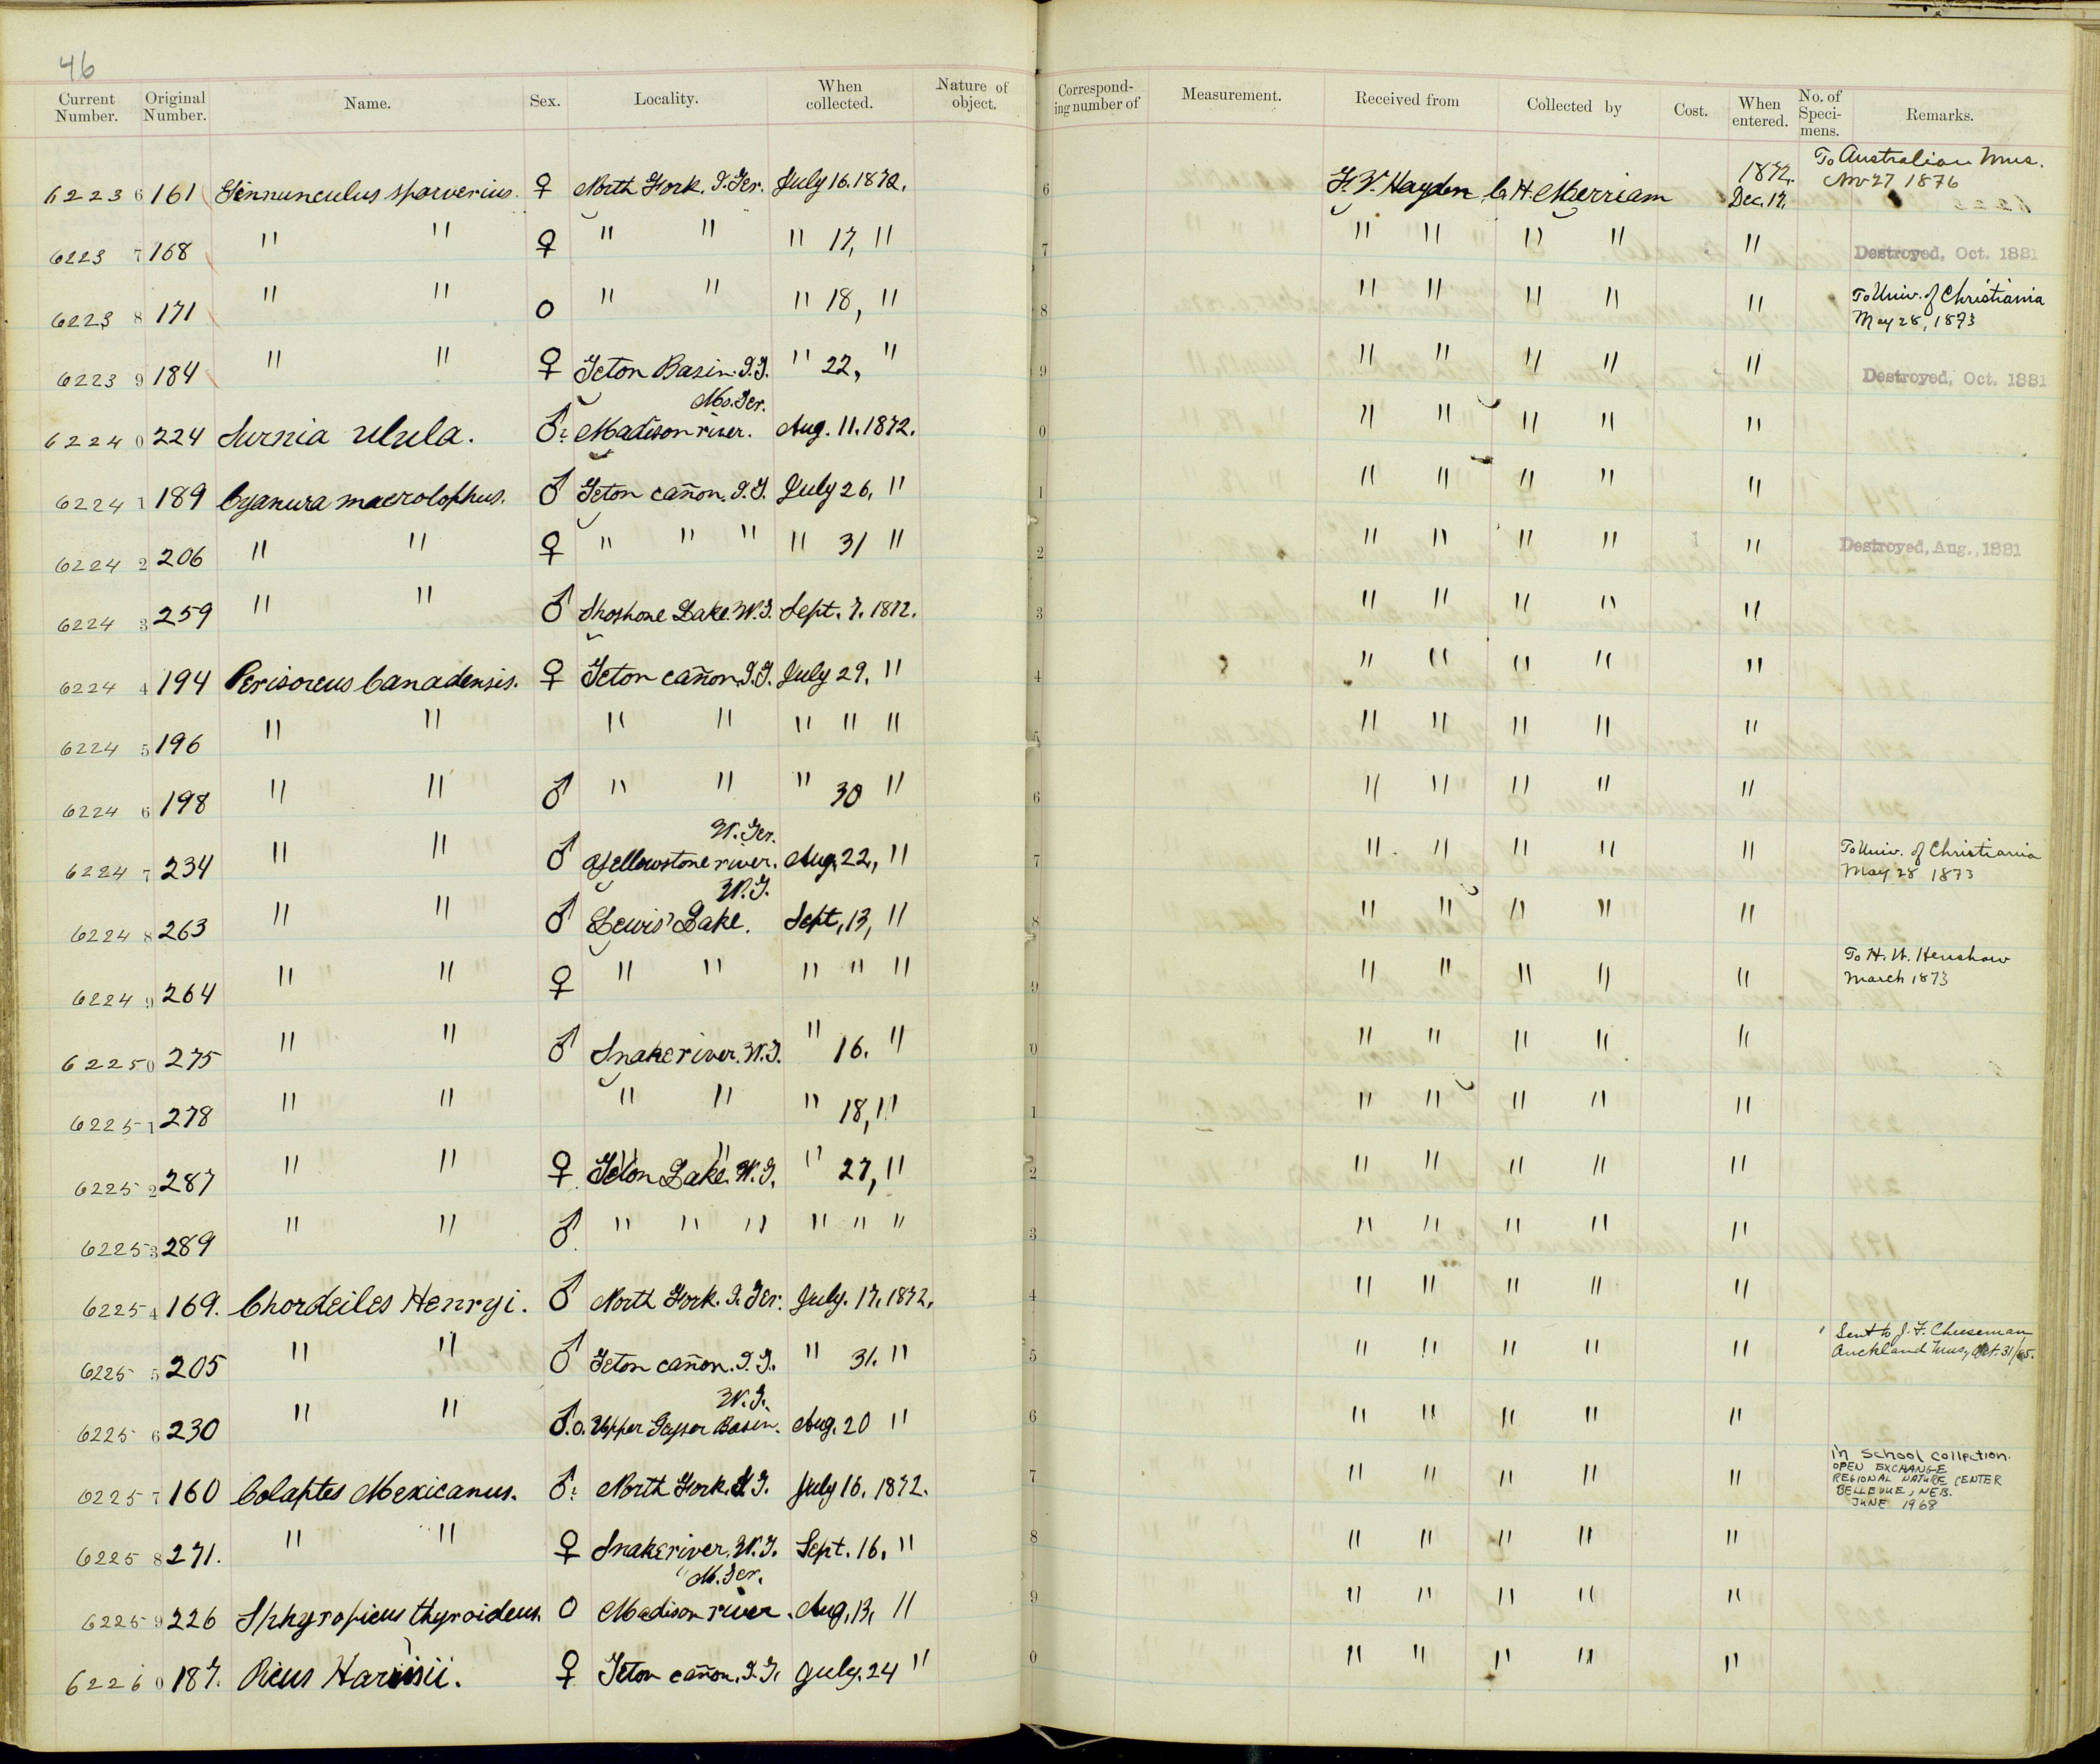 46
Current Number. Original Number. Name. Sex. Locality. When collected. Nature of object. Correspond-ing number of Measurement. Received from Collected by Cost. When entered. No. of Speci-mens. Remarks.
62236 161 Tinnunculus sparverius. ♀ North Fork. I. Ter. July 16. 1872. 6 F. V. Hayden C. H. Merriam 1872. Dec. 17. To Australian Mus. Nov 27 1876
62237 168 " " ♀ " " " 17, " 7 " " " " " Destroyed, Oct. 1881
62238 171 " " O " " " 18, " 8 " " " " " To Univ. of Christiania May 28, 1873
62239 184 " " ♀ Teton Basin. I.T. " 22, " 9 " " " " " Destroyed, Oct. 1881
62240 224 Surnia ulula. ♂? Madison river. Mo. Ter. Aug. 11. 1872. 0 " " " " "
62241 189 Cyanura macrolophus. ♂ Teton cañon. I.T. July 26, " 1 " " " " "
62242 206 " " ♀ " " " " 31 " 2 " " " " " Destroyed, Aug., 1881
62243 259 " " ♂ Shoshone Lake. W.T. Sept. 7. 1872. 3 " " " " "
62244 194 Perisoreus Canadensis. ♀ Teton cañon, I.T. July 29, " 4 " " " " "
62245 196 " " " " " " " 5 " " " " "
62246 198 " " ♂ " " " 30 " 6 " " " " "
62247 234 " " ♂ Yellowstone river. W. Ter. Aug. 22, " 7 " " " " " To Univ. of Christiania May 28 1873
62248 263 " " ♂ Lewis' Lake. W.T. Sept, 13, " 8 " " " " "
62249 264 " " ♀ " " " " " 9 " " " " " To H. W. Henshaw March 1873
62250 275 " " ♂ Snake river. W.T. " 16. " 0 " " " " "
62251 278 " " " " " 18, " 1 " " " " "
62252 287 " " ♀ Teton Lake. W.T. " 27, " 2 " " " " "
62253 289 " " ♂ " " " " " " 3 " " " " "
62254 169. Chordeiles Henryi. ♂ North Fork. I. Ter. July. 17. 1872. 4 " " " " "
62255 205 " " ♂ Teton cañon. I.T. " 31. " 5 " " " " " Sent to J. F. Cheeseman Auckland Mus, Oct. 31/85.
62256 230 " " ♂.O. Upper Geyser Basin. W.T. Aug. 20 " 6 " " " " "
62257 160 Colaptes Mexicanus. ♂? North Fork. I.T. July 16. 1872. 7 " " " " " In School collection. OPEN EXCHANGE REGIONAL NATURE CENTER BELLEVUE, NEB. JUNE 1968
62258 271. " " ♀ Snake river. W.T. Sept. 16, " 8 " " " " "
62259 226 Sphyropicus thyroideus. O Madison river. M. Ter. Aug, 13, " 9 " " " " "
62260 187. Picus Harrisii. ♀ Teton cañon. I.T. July. 24 " 0 " " " " "